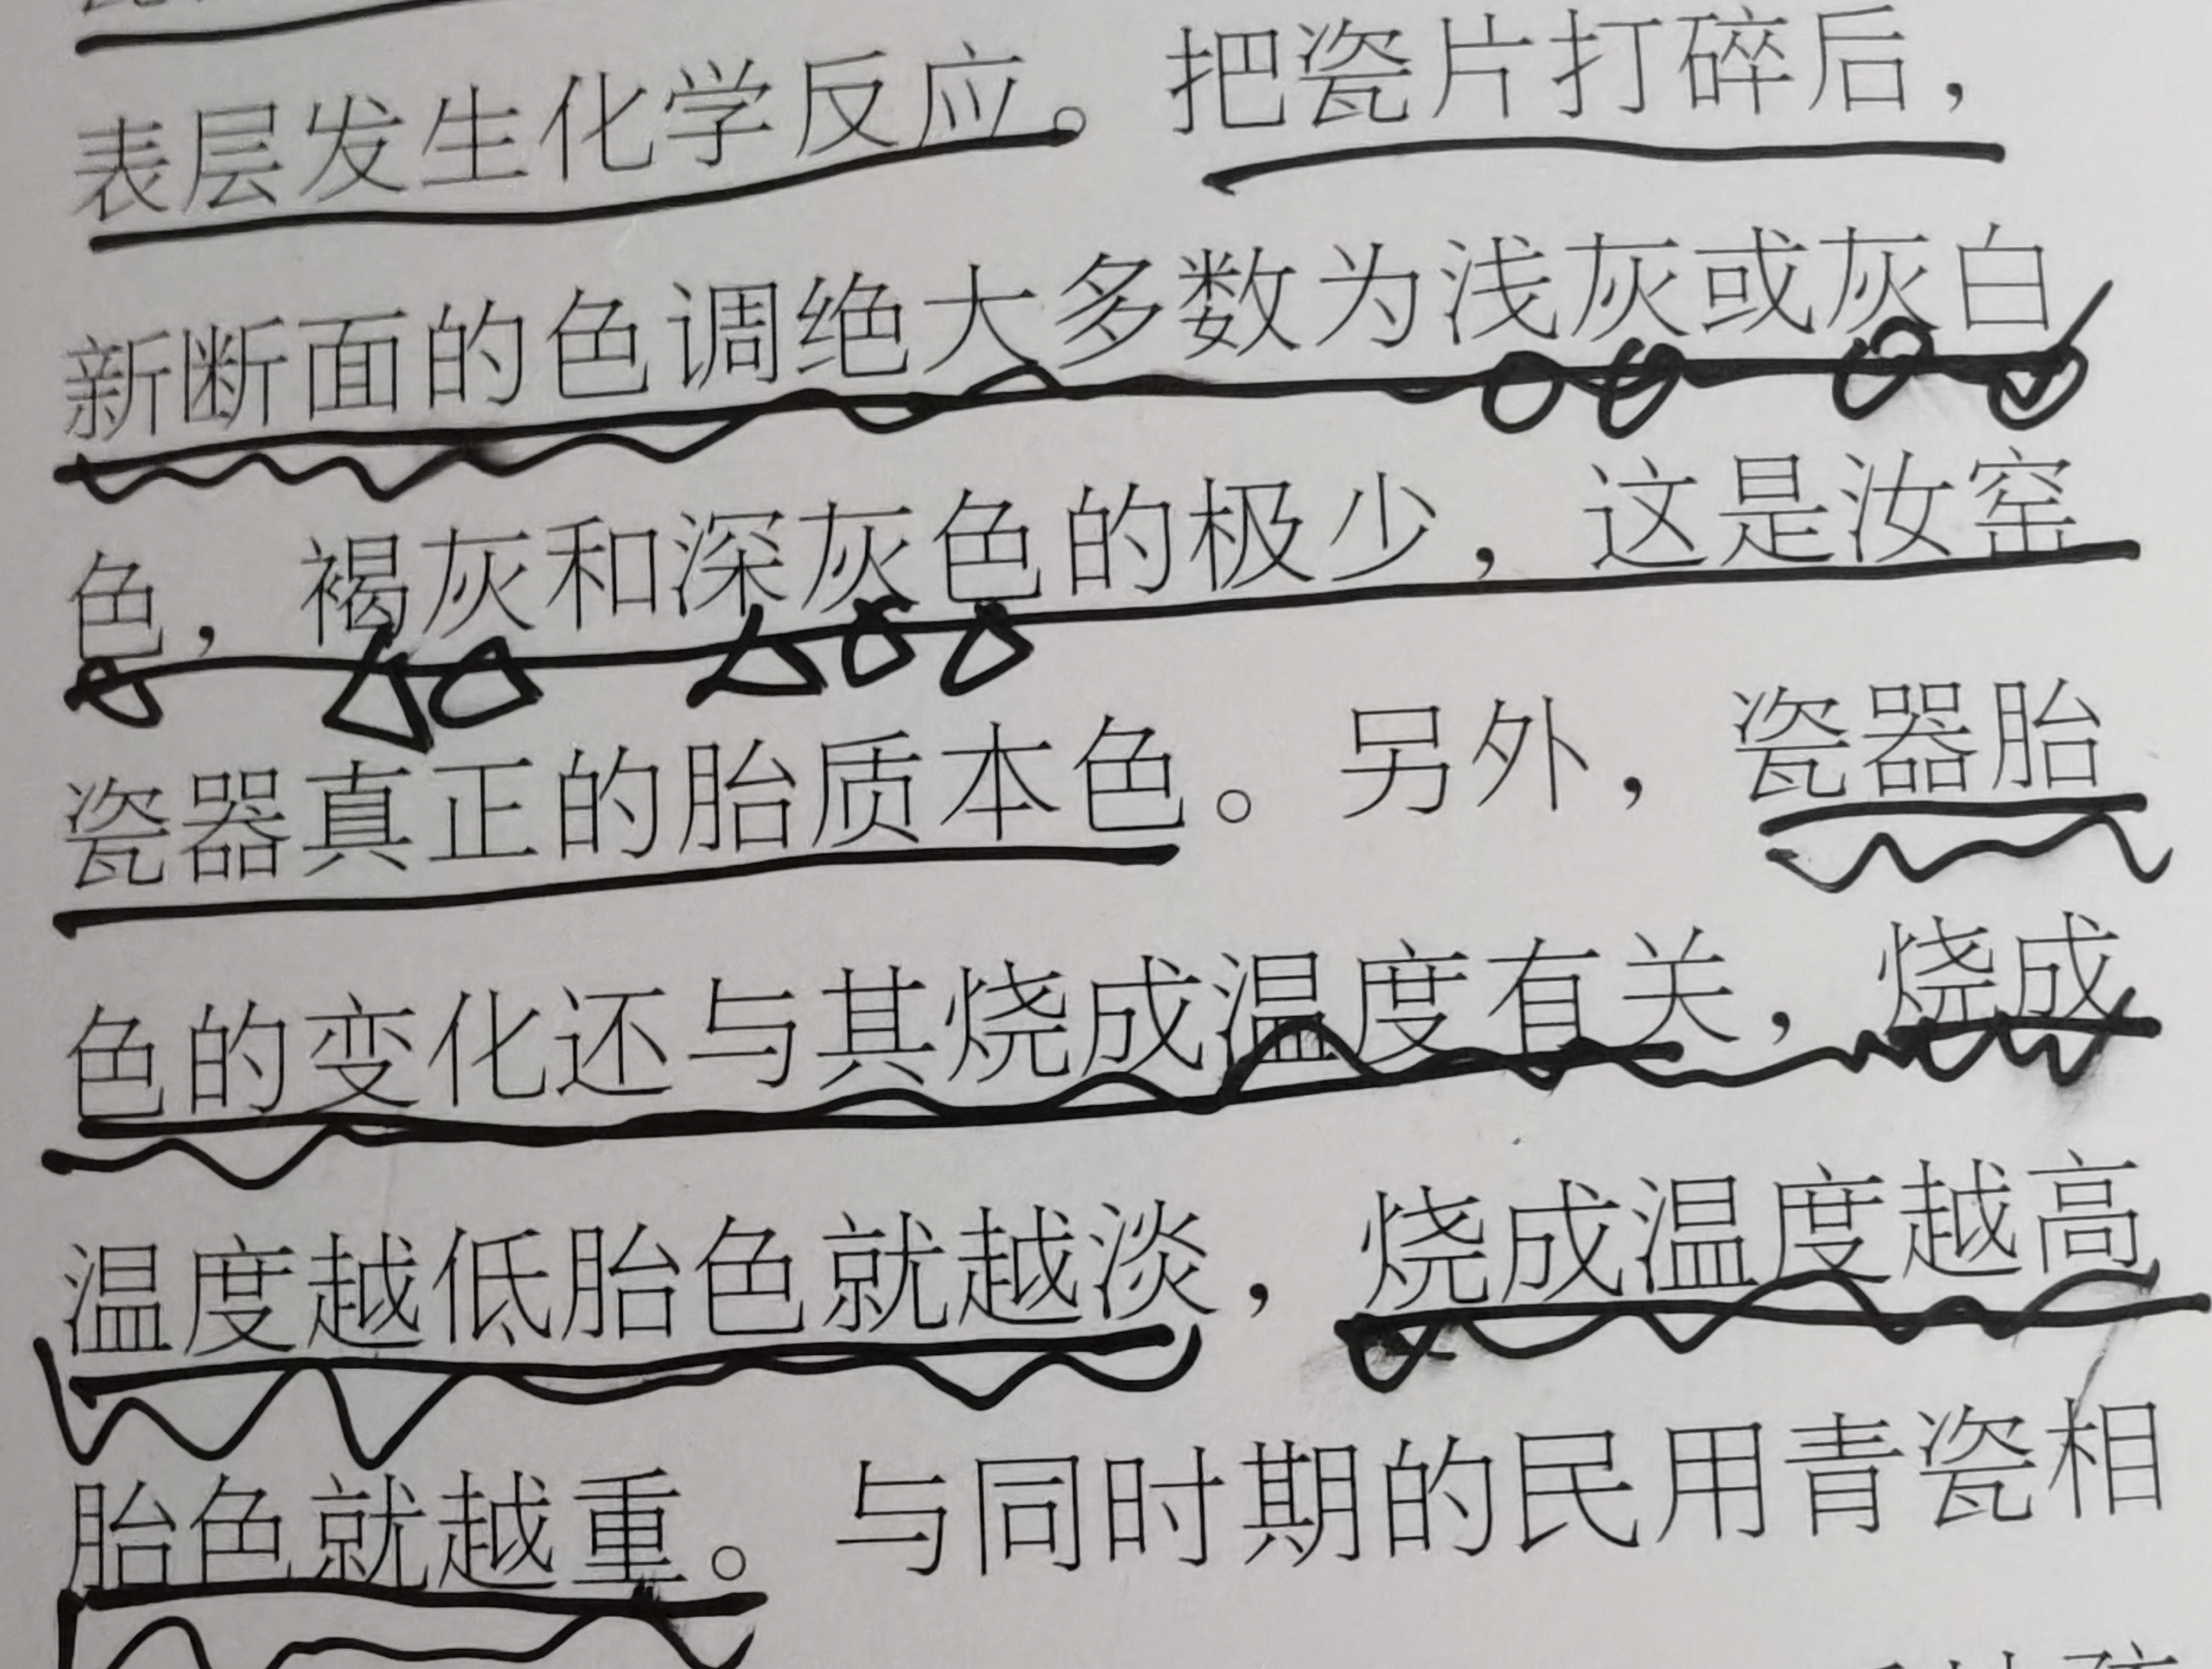 表层发生化学反应。把瓷片打碎后，
新断面的色调绝大多数为浅灰或灰白
色，褐灰和深灰色的极少，这是汝窑
瓷器真正的胎质本色。另外，瓷器胎
色的变化还与其烧成温度有关，烧成
温度越低胎色就越淡，烧成温度越高
胎色就越重。与同时期的民用青瓷相